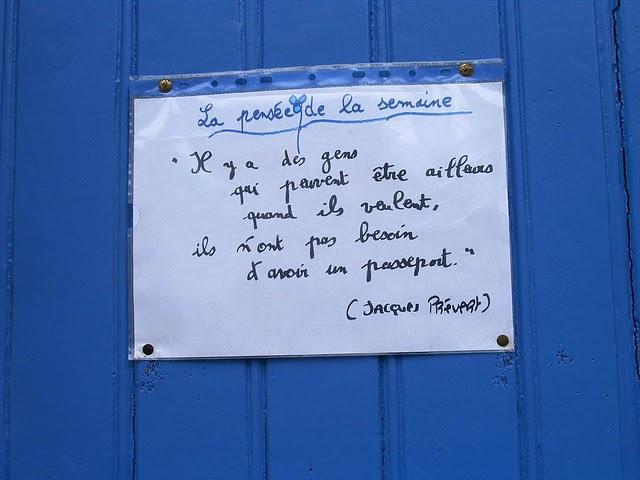 La pensée de la semaine
" Il y a des gens
qui peuvent être ailleurs
quand ils veulent,
ils n'ont pas besoin
d'avoir un passeport. "
(Jacques Prévert)